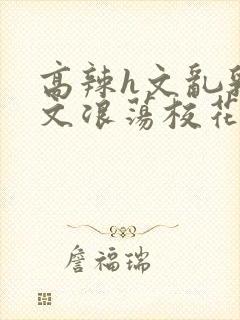 高辣h文乱乳
文浪荡校花
詹福瑞